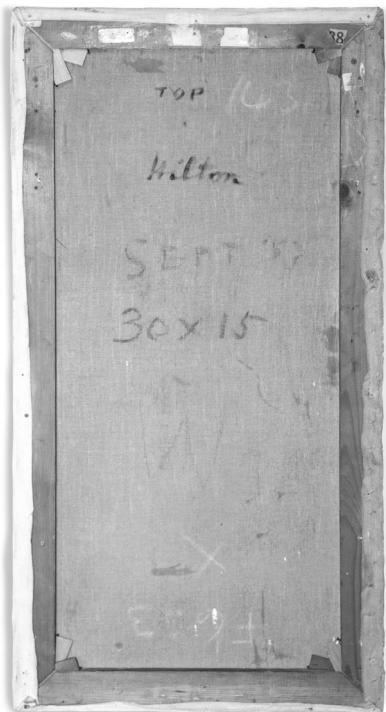 38
TOP 143
Hilton
SEPT '53
30 X 15
X